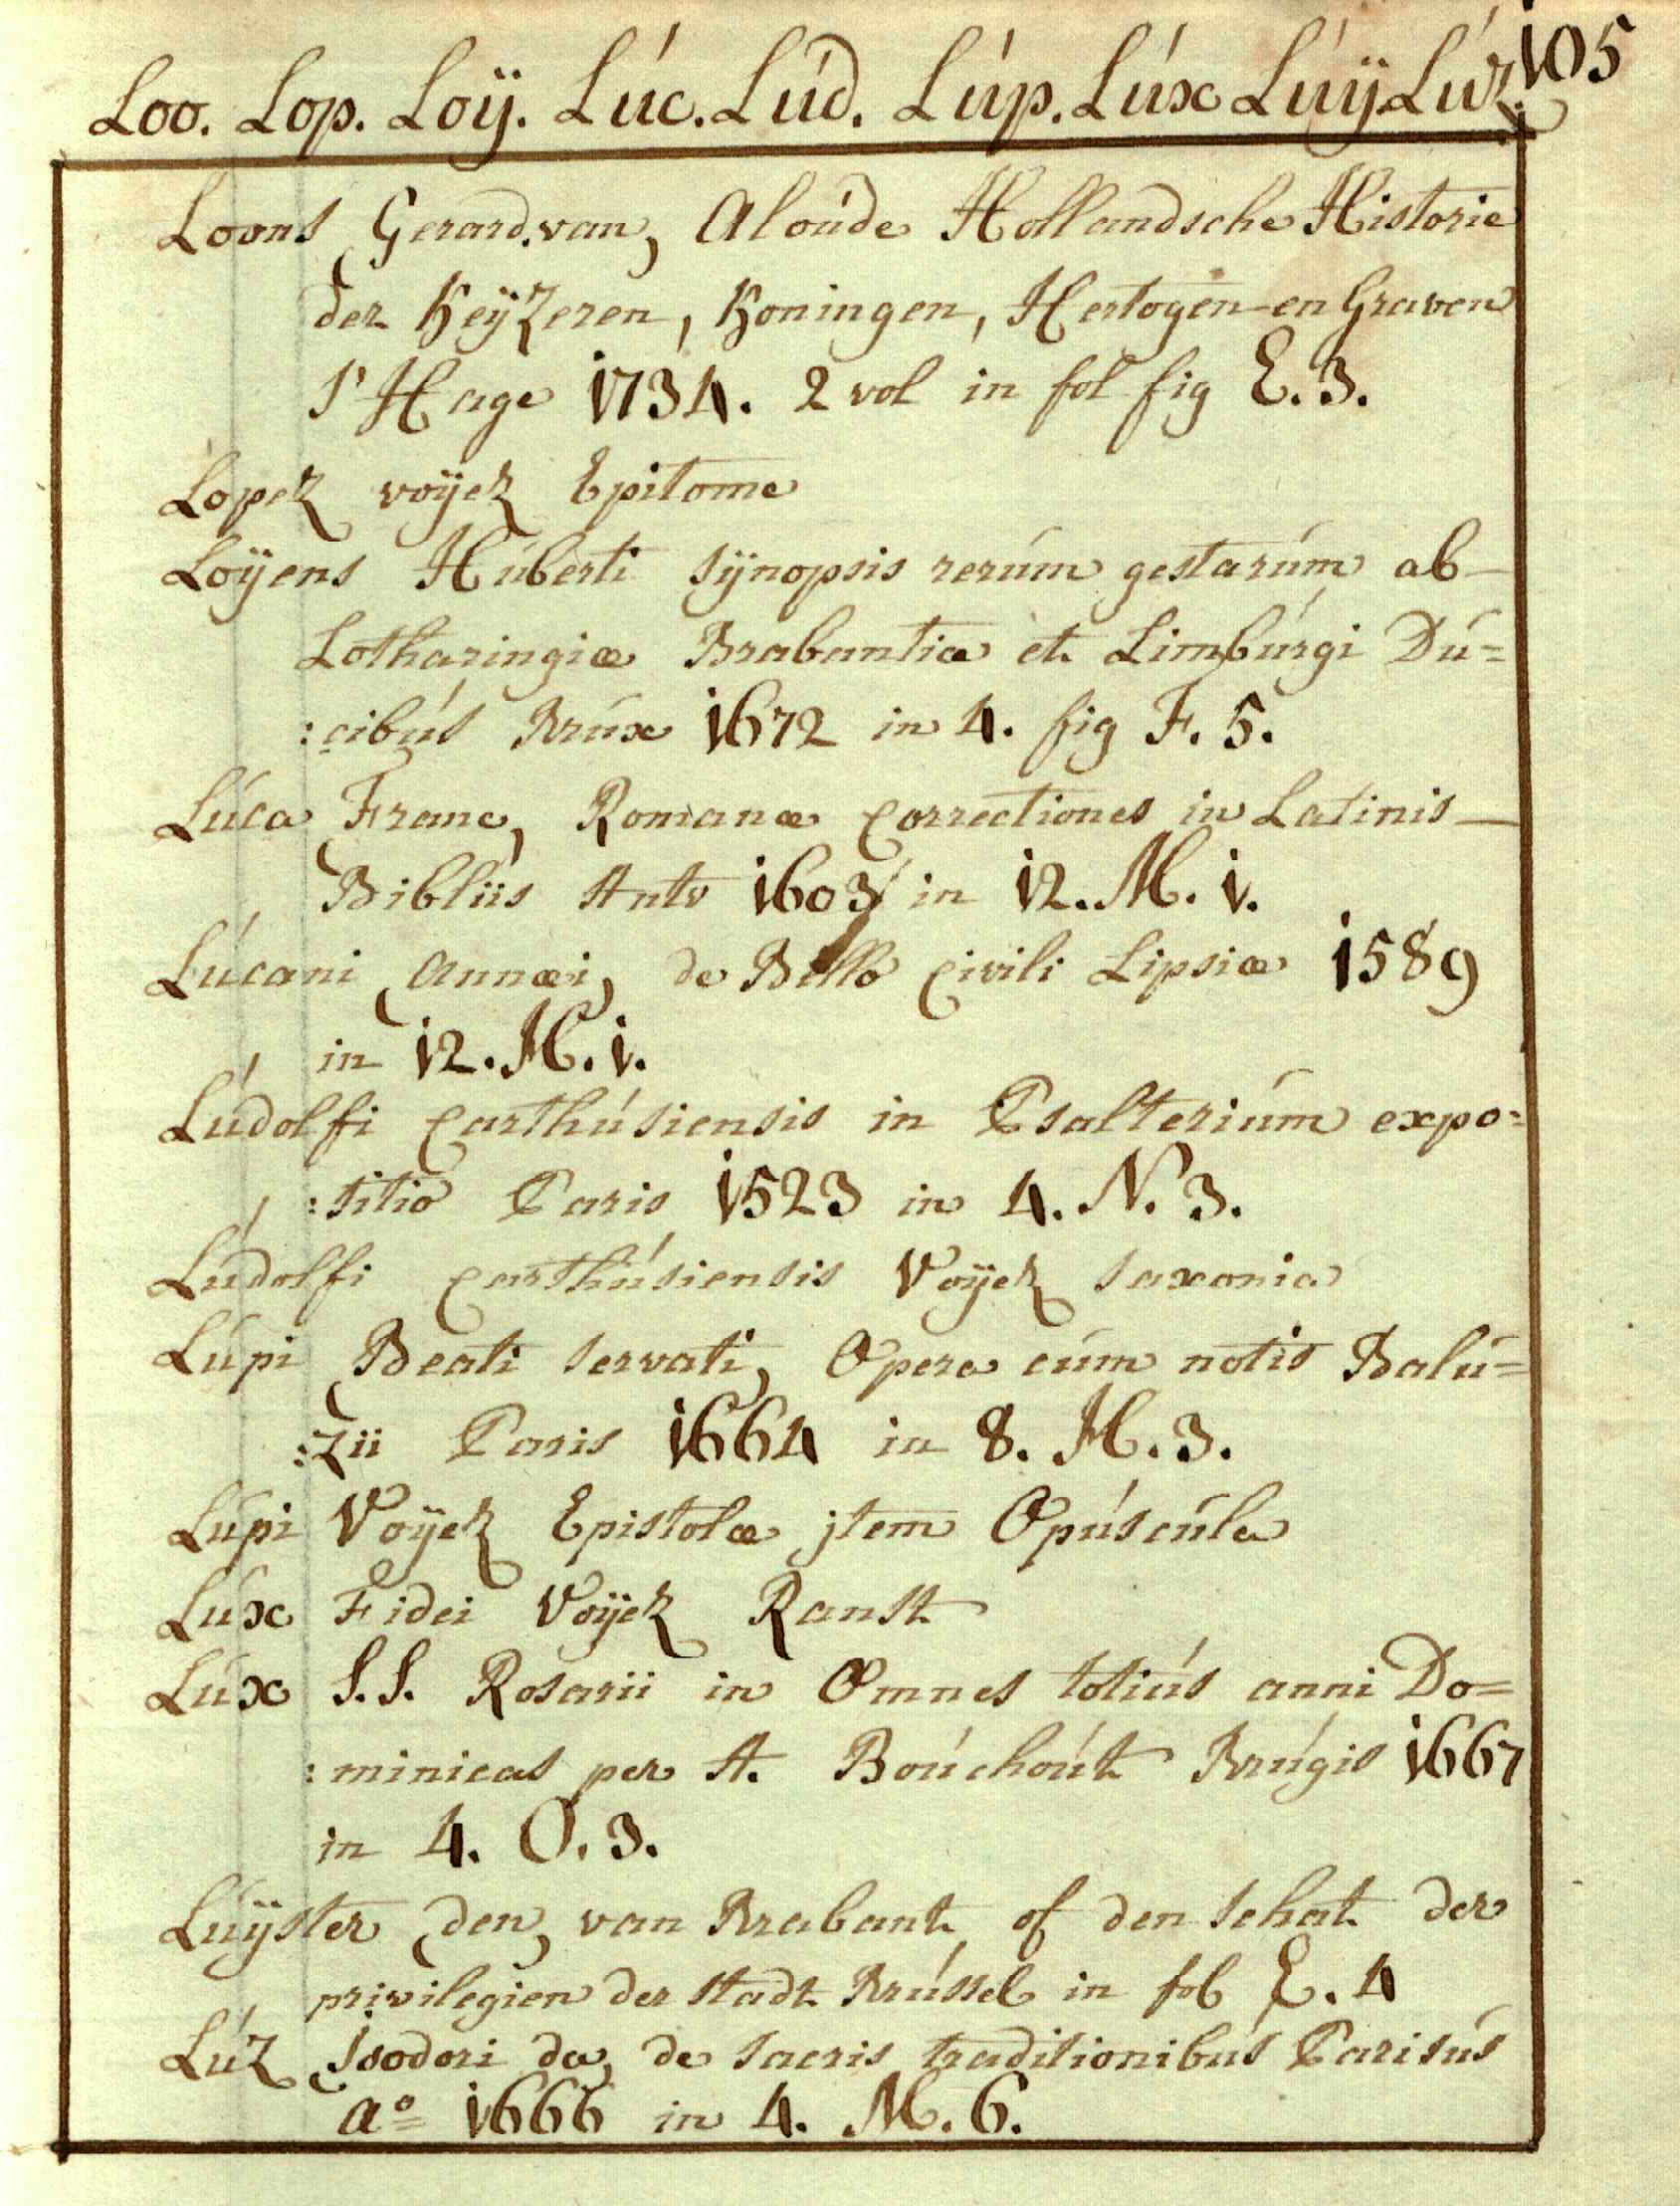 Loo. Lop. Loÿ. Lúc. Lúd. Lúp. Lúx Lúÿ Lúz. 105
Loons (Gerard. van) Aloúde Hollandsche Historie
der Keÿzeren, Koningen, Hertogen en Graven
s'Hage 1734. 2 vol in fol fig E. 3.
Lopez voÿez Epitome
Loÿens Húberti sÿnopsis rerúm gestarúm ab
Lotharingiæ Brabantiæ et Limbúrgi Dú=
:cibús Brúx 1672 in 4. fig F. 5.
Lúca (Franc) Romanæ Correctiones in Latinis
Bibliis Antv 1603 in 12. M. 1.
Lúcani (Annæi) de Bello Civili Lipsiæ 1589
in 12. H. 1.
Lúdolfi Carthúsiensis in Psalteriúm expo=
:sitio Paris 1523 in 4. N. 3.
Lúdolfi Carthúsiensis Voÿez saxonia
Lúpi (Beati servati) Opera cúm notis Balú=
:zii Paris 1664 in 8. H. 3.
Lúpi Voÿez Epistolæ jtem Opúscúla
Lúx Fidei Voÿez Ranst
Lúx S.S. Rosarii in Omnes totiús anni Do=
:minicas per A. Boúchoút Brúgis 1667
in 4. O. 3.
Lúÿster (den) van Brabant of den schat der
privilegien der stadt Brússel in fol E. 4
Lúz (Isodori da) de sacris traditionibús Parisús
aº 1666 in 4. M. 6.